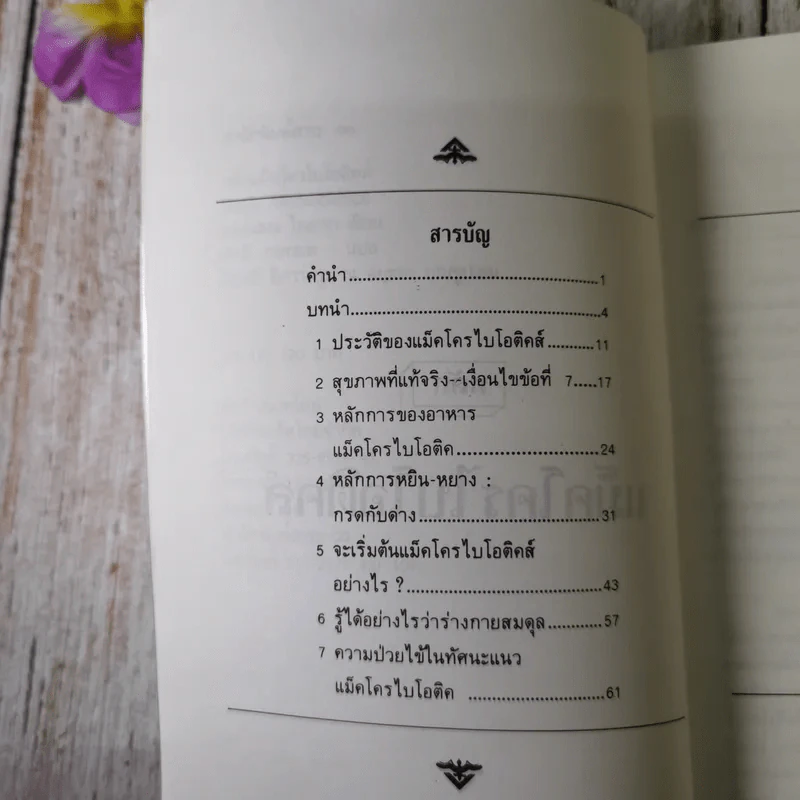 สารบัญ
คำนำ..................................................1
บทนำ..................................................4
1 ประวัติของแม็คโครไบโอติคส์...........11
2 สุขภาพที่แท้จริง--เงื่อนไขข้อที่ 7.....17
3 หลักการของอาหาร
แม็คโครไบโอติค............................24
4 หลักการหยิน-หยาง :
กรดกับด่าง...................................31
5 จะเริ่มต้นแม็คโครไบโอติคส์
อย่างไร ?.....................................43
6 รู้ได้อย่างไรว่าร่างกายสมดุล............57
7 ความป่วยไข้ในทัศนะแนว
แม็คโครไบโอติค ...........................61